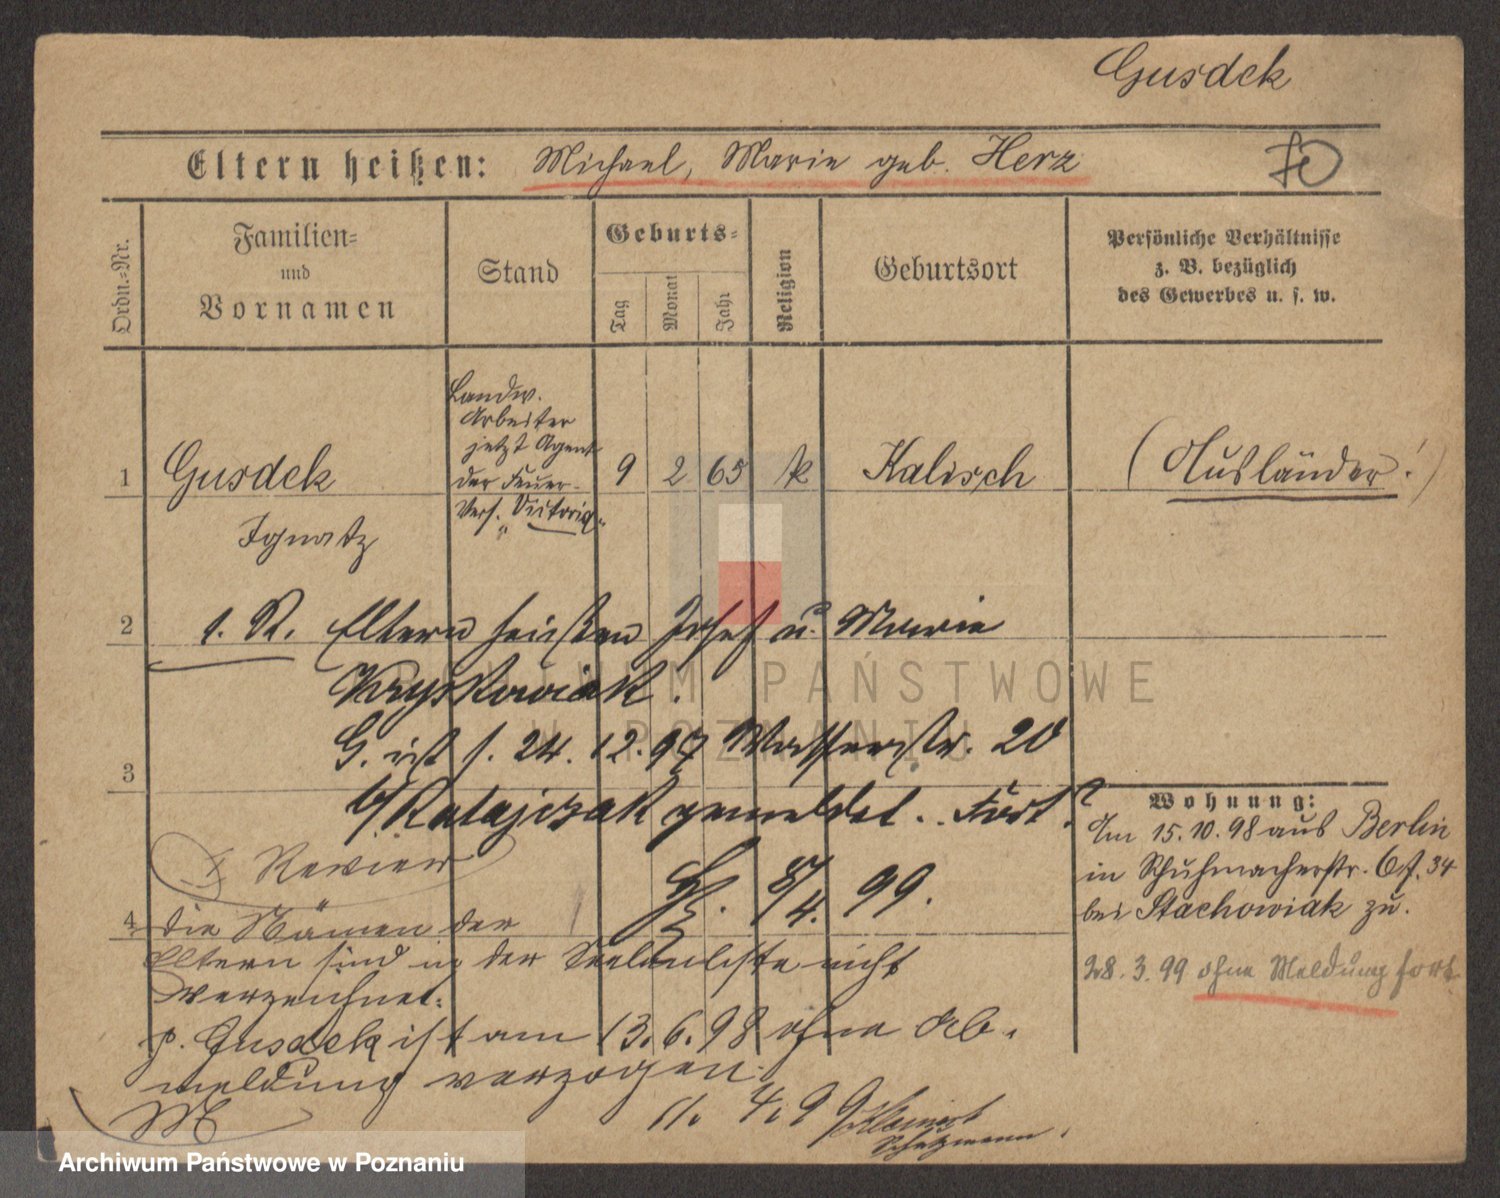 Gusdek
Eltern heißen: Michael, Marie geb. Herz
Ordn.-Nr.
Familien-
und
Vornamen
Stand
Geburts-
Tag
Monat
Jahr
Religion
Geburtsort
Persönliche Verhältnisse
z. B. bezüglich
des Gewerbes u. s. w.
Landw.
Arbeiter
jetzt Agent
der Feuer-
Vers. Victoria
1 Gusdek 9 2 65 k Kalisch (Ausländer!)
Ignatz
2 1. R. Eltern heißen Josef u. Marie
Kryskowiak.
G. ist s. 24. 12. 97 Wasserstr. 20
3
b/ Ratajczak gemeldet. Fort?
Wohnung:
Am 15.10.98 aus Berlin
in Schuhmacherstr. 34
bei Stachowiak zu.
28.3.99 ohne Meldung fort
Revier
8/4. 99.
4 Die Namen der
Eltern sind in der Seelenliste nicht
verzeichnet.
p. Gusdek ist am 13.6.98 ohne Ab-
meldung verzogen.
11. 4. 99
Schutzmann
ARCHIWUM PAŃSTWOWE
W POZNANIU
Archiwum Państwowe w Poznaniu